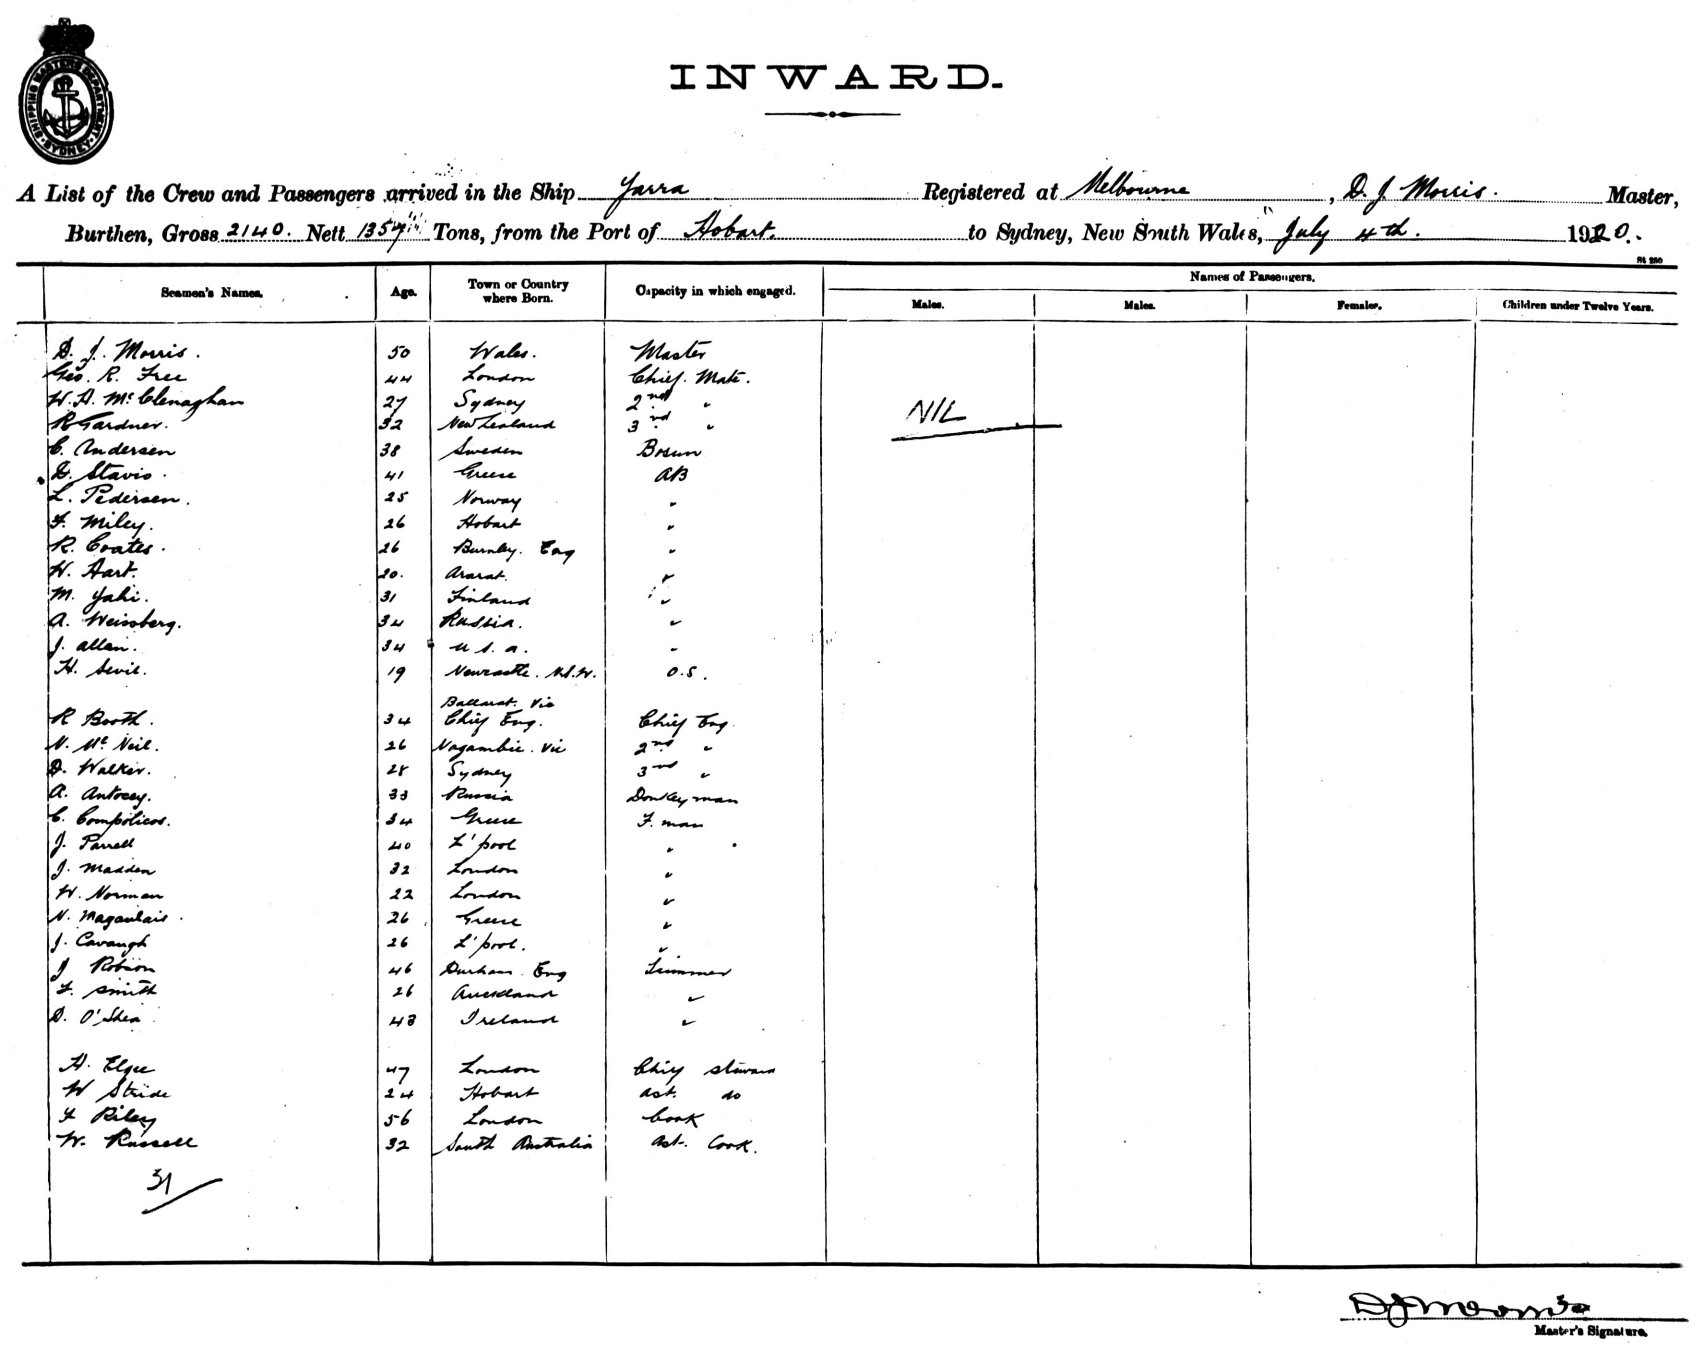 SHIPPING MASTERS DEPARTMENT
SYDNEY
INWARD.
A List of the Crew and Passengers arrived in the Ship Yarra Registered at Melbourne, D. J. Morris. Master,
Burthen, Gross 2140. Nett 1354 Tons, from the Port of Hobart. to Sydney, New South Wales, July 4th. 1920.
St 250
Seamen's Names. Age. Town or Country where Born. Capacity in which engaged. Names of Passengers.
Males. Males. Females. Children under Twelve Years.
D. J. Morris. 50 Wales. Master
Geo. R. Free 44 London Chief. Mate.
W. H. McClenaghan 27 Sydney 2nd "
NIL
R Gardner. 32 New Zealand 3rd "
C. Andersen 38 Sweden Bosun
D. Stavis. 41 Greese AB
L. Pedersen. 25 Norway "
F. Miley. 26 Hobart "
R. Coates. 26 Burnley. Eng "
W. Hart. 20. Ararat. "
M. Yahi. 31 Finland "
A. Weissberg. 34 Russia. "
J. Allan. 34 U. S. A. "
H. Sevil. 19 Newcastle. N.S.W. O.S.
Ballarat. Vic
R Booth. 34 Chief Eng. Chief Eng.
N. McNeil. 26 Nagambie. Vic 2nd "
D. Walker. 28 Sydney 3rd "
A. Antocey. 33 Russia Donkeyman
C. Compolicos. 34 Greese F. man
J. Parrell 40 L'pool "
J. Madden 32 London "
W. Norman 22 London "
N. Magaulais. 26 Greese "
J. Cavaugh 26 L'pool. "
J Robson 46 Durham. Eng Trimmer
F. Smith 26 Auckland "
D. O'Shea 43 Ireland "
H. Elgee 47 London Chief Steward
W Stride 24 Hobart Ast. do
F Riley 56 London Cook
W. Russell 32 South Australia Ast. Cook.
31
D J Morris
Master's Signature.